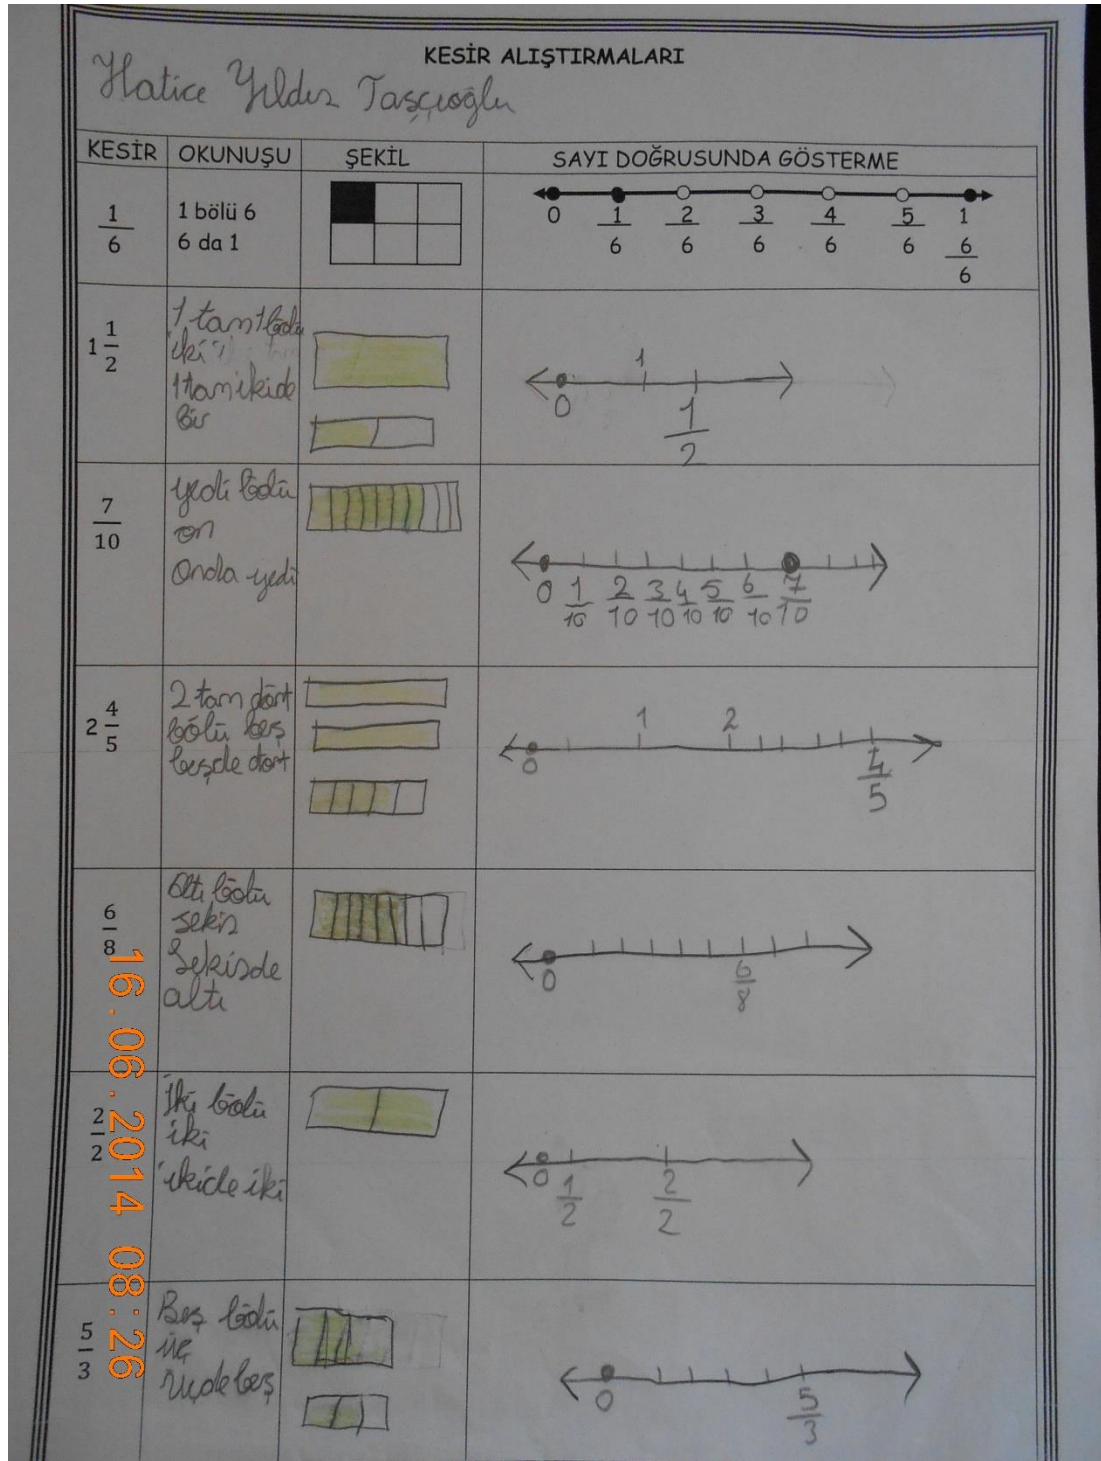 KESİR ALIŞTIRMALARI
Hatice Yıldız Taşçıoğlu
KESİR OKUNUŞU ŞEKİL SAYI DOĞRUSUNDA GÖSTERME
1/6
1 bölü 6
6 da 1
0 1/6 2/6 3/6 4/6 5/6 1 6/6
1 1/2
1 tam 1 bölü
iki
1 tam ikide
bir
0 1 1/2
7/10
yedi bölü
on
onda yedi
0 1/10 2/10 3/10 4/10 5/10 6/10 7/10
2 4/5
2 tam dört
bölü beş
beşde dört
0 1 2 4/5
6/8
altı bölü
sekiz
Sekizde
altı
0 6/8
2/2
İki bölü
iki
ikide iki
0 1/2 2/2
5/3
Beş bölü
üç
üçde beş
0 5/3
16.06.2014 08:26